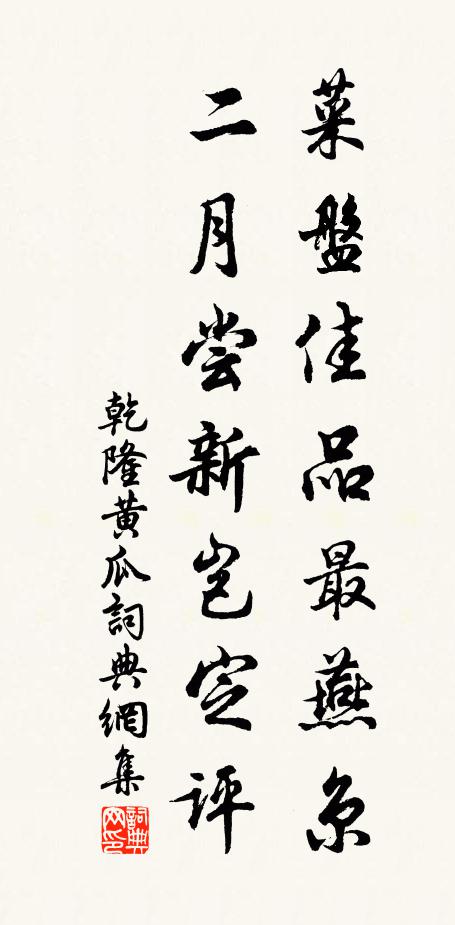 菜盤佳品最燕京
二月尝新岂定评
乾隆黄瓜詞典網集
詞典网印